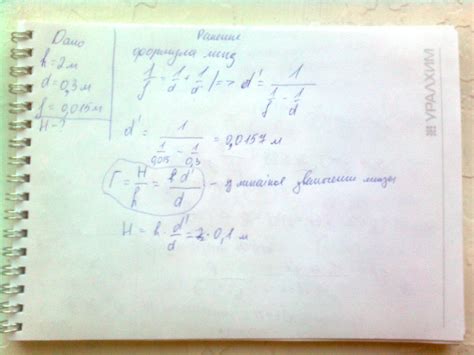 Дано
h = 2 м
d = 0,3 м
f = 0,015 м
H - ?
Решение
формула линз
1/f = 1/d + 1/d' | => d' = 1/(1/f - 1/d)
d' = 1/(1/0,015 - 1/0,3) = 0,0157 м
Г = H/h = d'/d - линейное
H = h · d'/d = 2 · 0,1 м
УРАЛХИМ